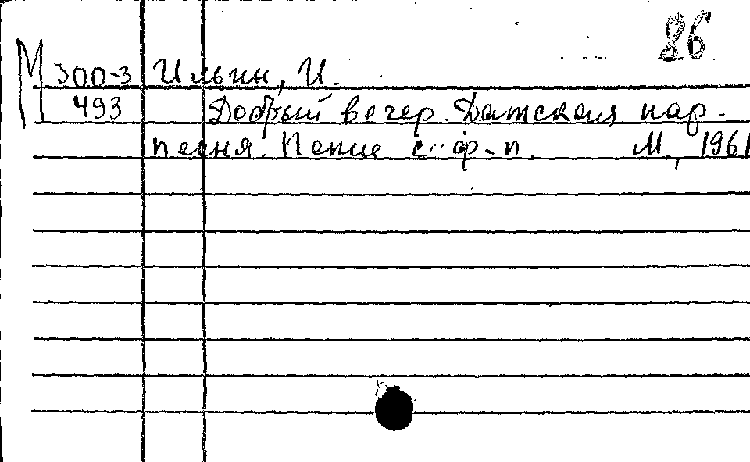 86
М 300-3 Ильин, И.
493 Добрый вечер. Датская нар.
песня. Пение с ф-п. М., 1961